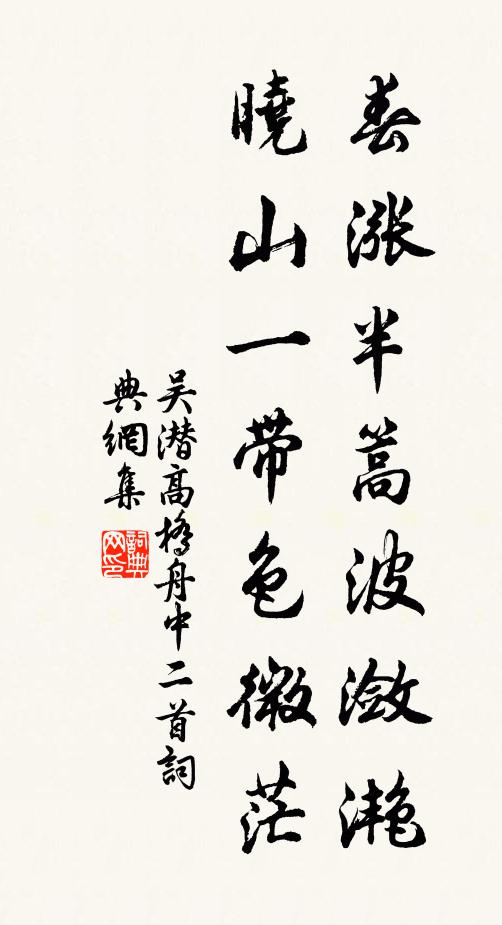 春涨半篙波潋滟
曉山一帶色微茫
吴潜高橋舟中二首詞
典網集
詞典网印